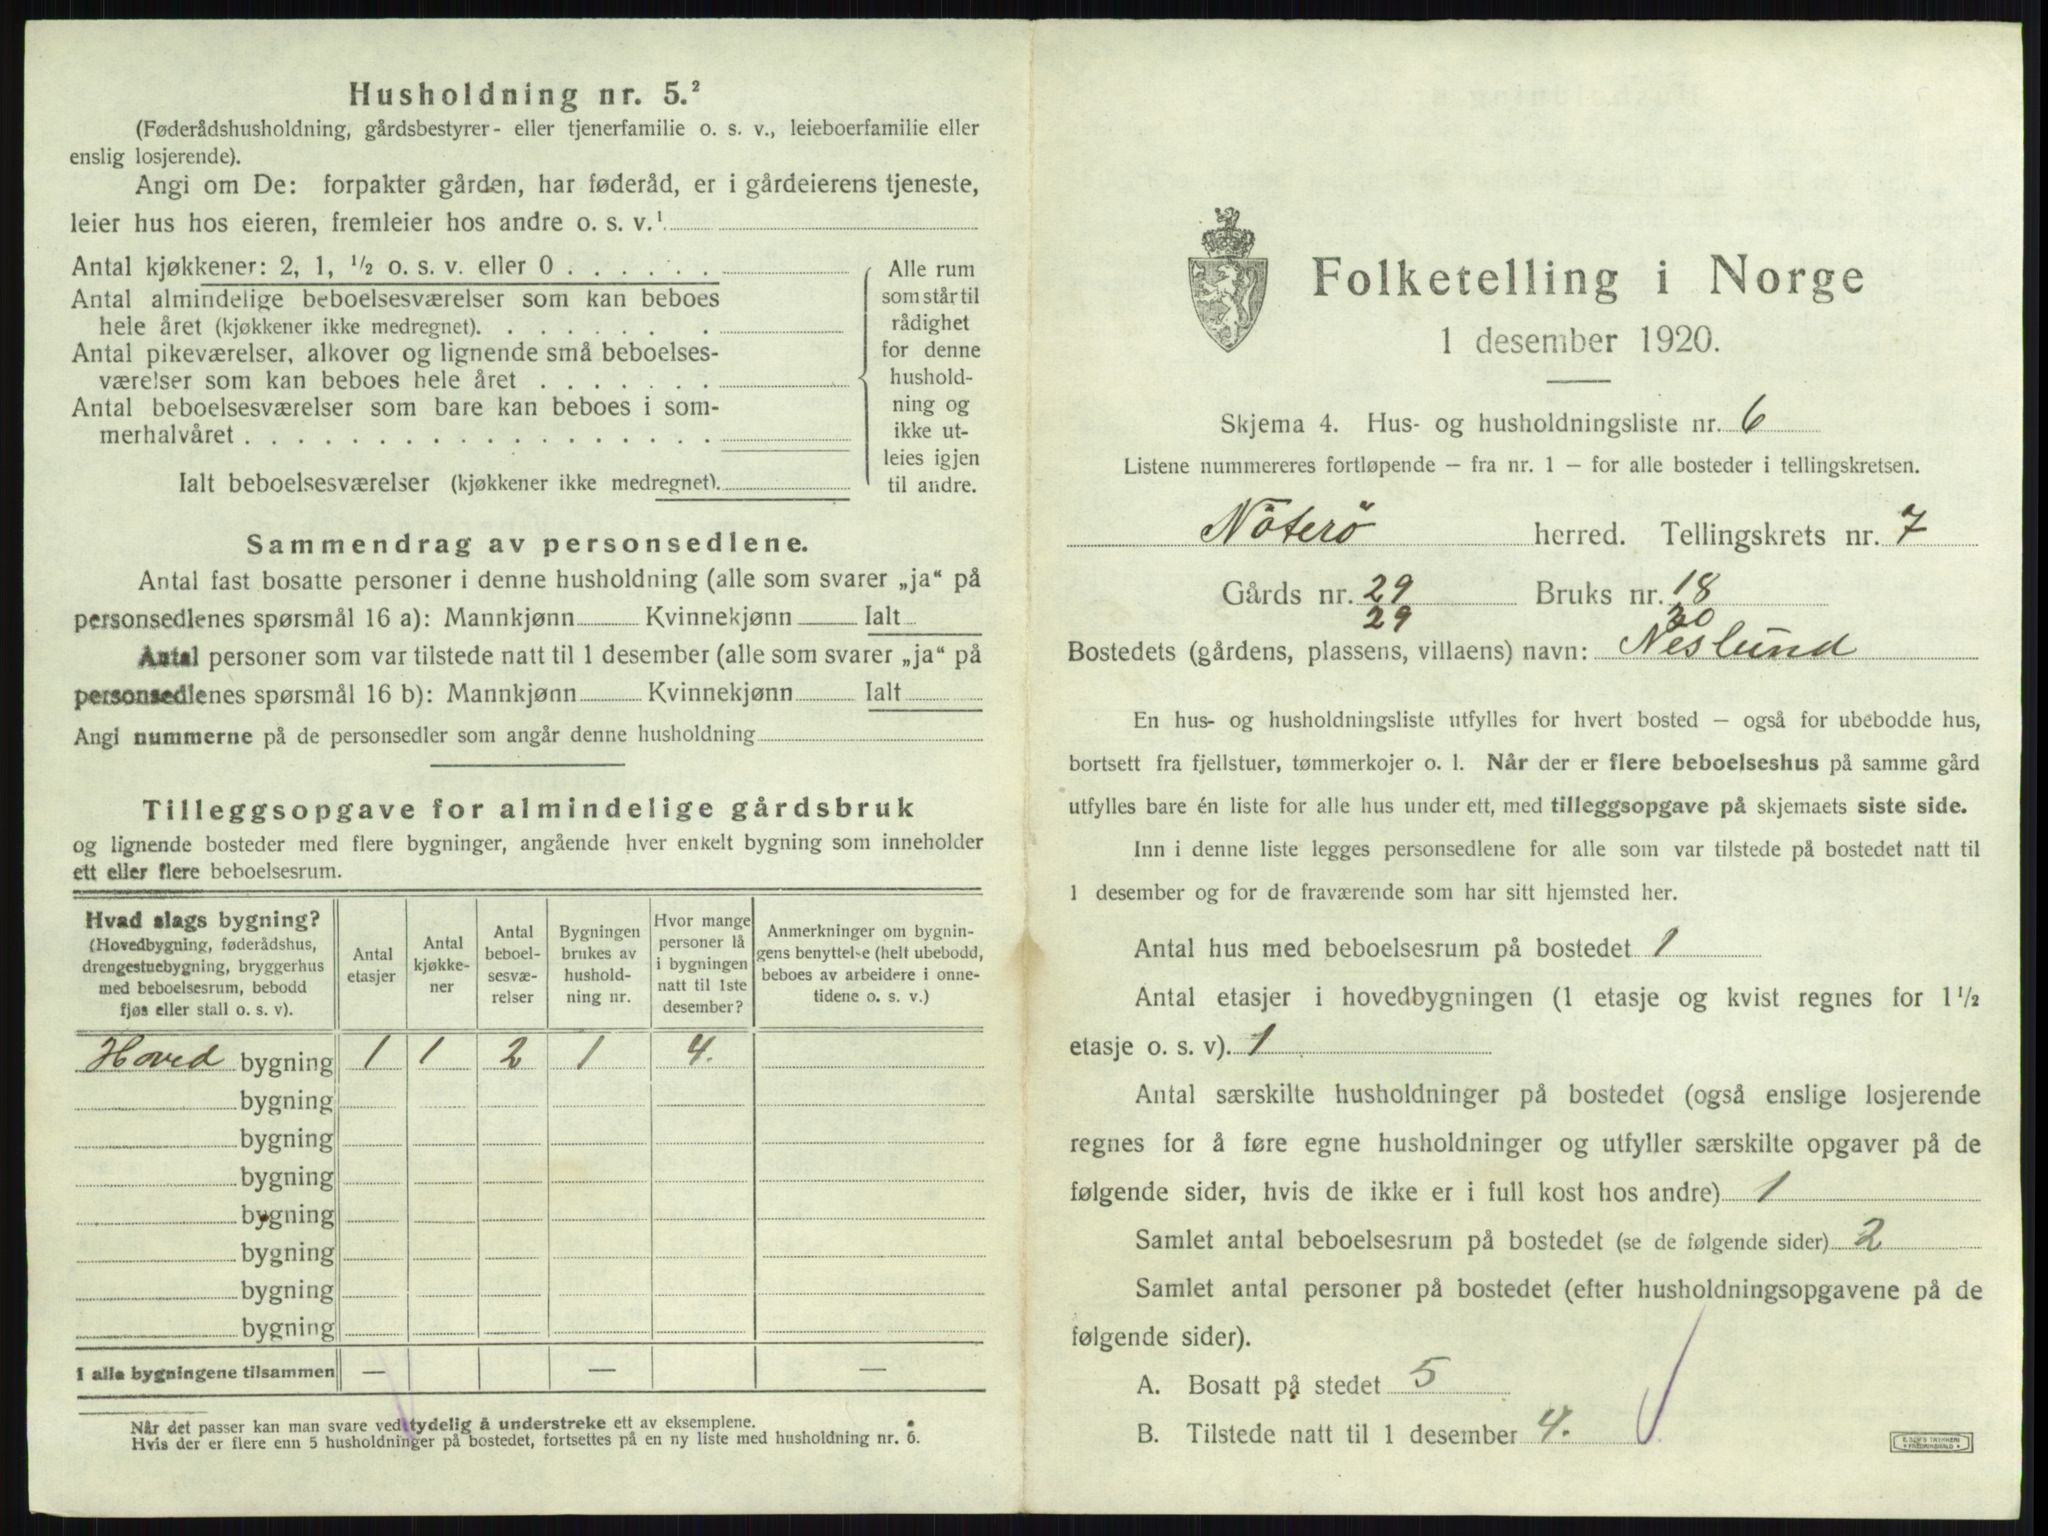 Husholdning nr. 5.²
(Føderådshusholdning, gårdsbestyrer- eller tjenerfamilie o. s. v., leieboerfamilie eller
enslig losjerende).
Angi om De: forpakter gården, har føderåd, er i gårdeierens tjeneste,
leier hus hos eieren, fremleier hos andre o. s. v.¹
Antal kjøkkener: 2, 1, ½ o. s. v. eller 0 . . . . . .
Antal almindelige beboelsesværelser som kan beboes
hele året (kjøkkener ikke medregnet). . . . . . . .
Antal pikeværelser, alkover og lignende små beboelses-
værelser som kan beboes hele året . . . . . . .
Antal beboelsesværelser som bare kan beboes i som-
merhalvåret . . . . . . . . . . . . . . . . . .
Ialt beboelsesværelser (kjøkkener ikke medregnet).
Alle rum
som står til
rådighet
for denne
hushold-
ning og
ikke ut-
leies igjen
til andre.
Sammendrag av personsedlene.
Antal fast bosatte personer i denne husholdning (alle som svarer „ja“ på
personsedlenes spørsmål 16 a): Mannkjønn Kvinnekjønn Ialt
Antal personer som var tilstede natt til 1 desember (alle som svarer „ja“ på
personsedlenes spørsmål 16 b): Mannkjønn Kvinnekjønn Ialt
Angi nummerne på de personsedler som angår denne husholdning
Tilleggsopgave for almindelige gårdsbruk
og lignende bosteder med flere bygninger, angående hver enkelt bygning som inneholder
ett eller flere beboelsesrum.
Hvad slags bygning?
(Hovedbygning, føderådshus,
drengestuebygning, bryggerhus
med beboelsesrum, bebodd
fjøs eller stall o. s. v).
Antal
etasjer
Antal
kjøkke-
ner
Antal
beboel-
sesvæ-
relser
Bygningen
brukes av
hushold-
ning nr.
Hvor mange
personer lå
i bygningen
natt til 1ste
desember?
Anmerkninger om bygnin-
gens benyttelse (helt ubebodd,
beboes av arbeidere i onne-
tidene o. s. v.)
Hoved bygning 1 1 2 1 4.
bygning
bygning
bygning
bygning
bygning
bygning
bygning
I alle bygningene tilsammen — — —
Når det passer kan man svare ved tydelig å understreke ett av eksemplene.
Hvis der er flere enn 5 husholdninger på bostedet, fortsettes på en ny liste med husholdning nr. 6.
Folketelling i Norge
1 desember 1920.
Skjema 4. Hus- og husholdningsliste nr. 6
Listene nummereres fortløpende – fra nr. 1 – for alle bosteder i tellingskretsen.
Nöterö herred. Tellingskrets nr. 7
Gårds nr. 29 Bruks nr. 18
29 20
Bostedets (gårdens, plassens, villaens) navn: Neslund
En hus- og husholdningsliste utfylles for hvert bosted – også for ubebodde hus,
bortsett fra fjellstuer, tømmerkojer o. l. Når der er flere beboelseshus på samme gård
utfylles bare én liste for alle hus under ett, med tilleggsopgave på skjemaets siste side.
Inn i denne liste legges personsedlene for alle som var tilstede på bostedet natt til
1 desember og for de fraværende som har sitt hjemsted her.
Antal hus med beboelsesrum på bostedet 1
Antal etasjer i hovedbygningen (1 etasje og kvist regnes for 1 ½
etasje o. s. v). 1
Antal særskilte husholdninger på bostedet (også enslige losjerende
regnes for å føre egne husholdninger og utfyller særskilte opgaver på de
følgende sider, hvis de ikke er i full kost hos andre) 1
Samlet antal beboelsesrum på bostedet (se de følgende sider) 2
Samlet antal personer på bostedet (efter husholdningsopgavene på de
følgende sider).
A. Bosatt på stedet 5
B. Tilstede natt til 1 desember 4.